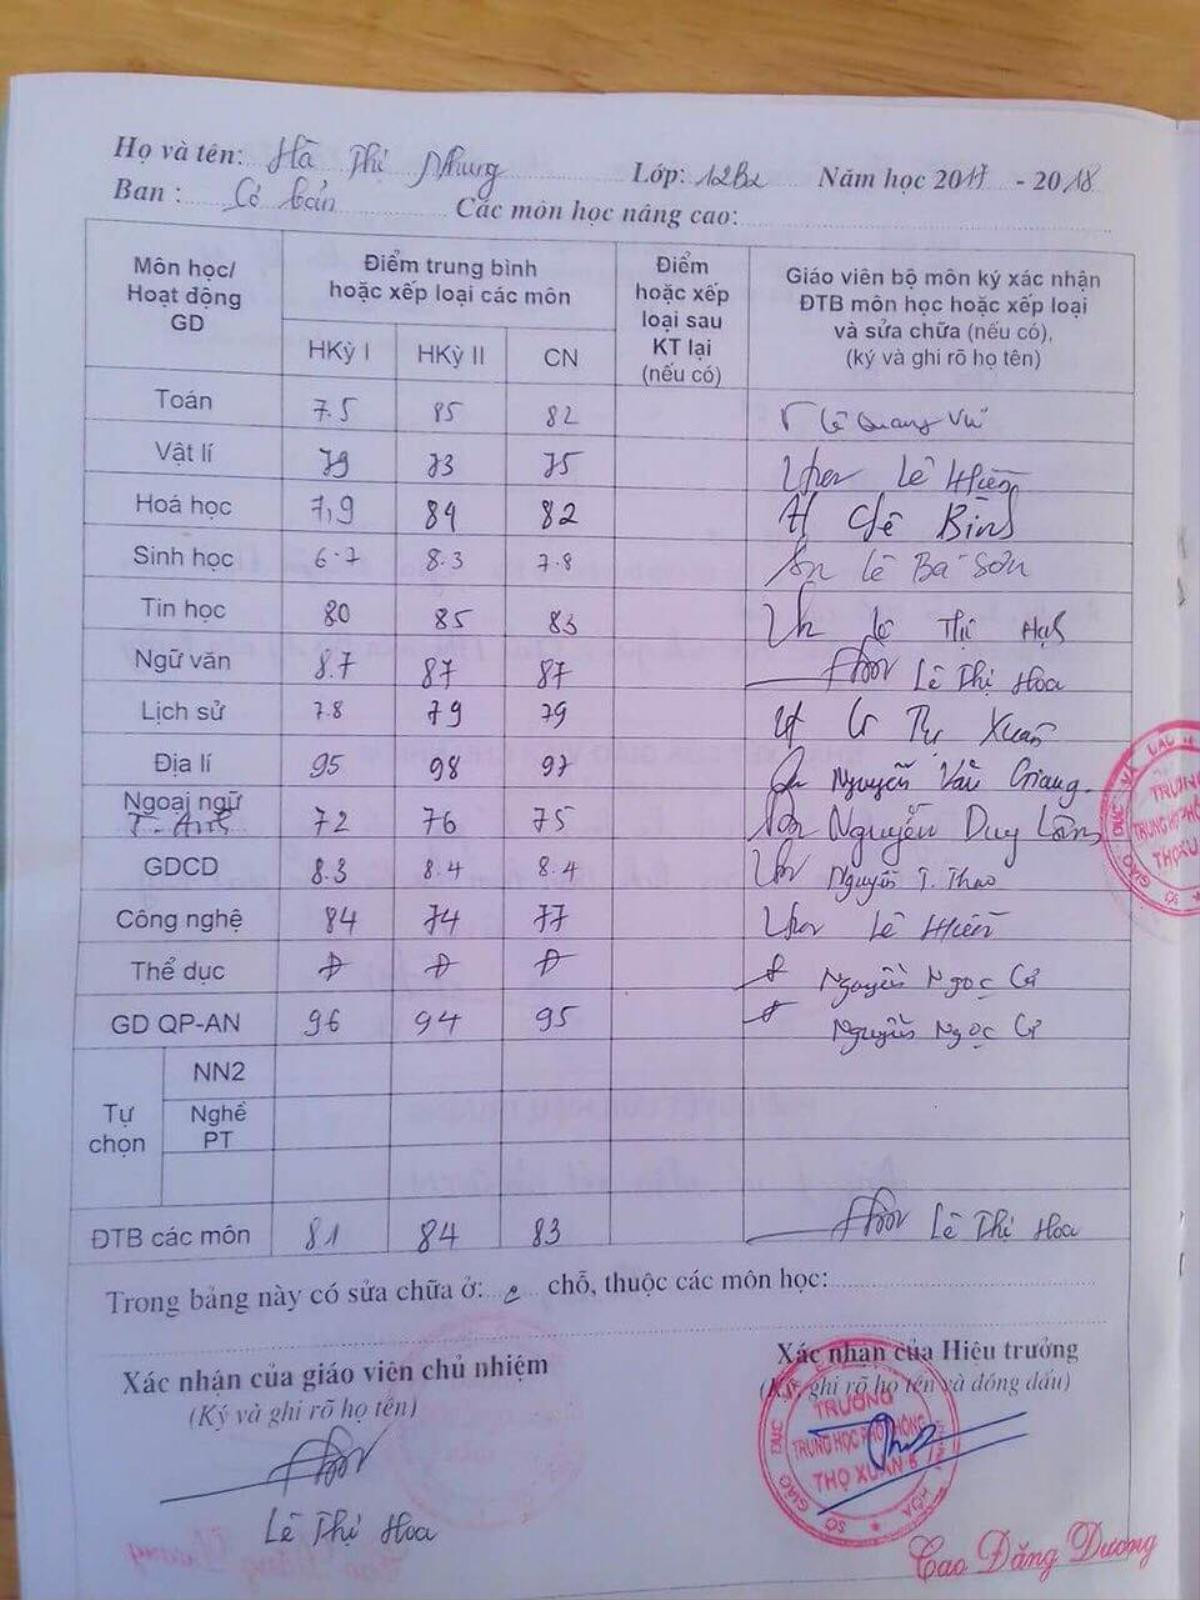 Họ và tên: Hà Thị Nhung Lớp: 12B2 Năm học 2017 - 2018
Ban : Cơ bản Các môn học nâng cao:
Môn học/ Hoạt động GD Điểm trung bình hoặc xếp loại các môn Điểm hoặc xếp loại sau KT lại (nếu có) Giáo viên bộ môn ký xác nhận ĐTB môn học hoặc xếp loại và sửa chữa (nếu có), (ký và ghi rõ họ tên)
HKỳ I HKỳ II CN
Toán 7.5 85 82 Lê Quang Vũ
Vật lí 79 73 75 Lê Hiền
Hoá học 7,9 84 82 Bình
Sinh học 6.7 8.3 7.8 Lê Bá Sơn
Tin học 80 85 83 Lê Thị
Ngữ văn 8.7 87 87 Lê Thị Hoa
Lịch sử 7.8 79 79 Xuân
Địa lí 95 98 97 Nguyễn Văn Giang
Ngoại ngữ T. Anh 72 76 75 Nguyễn Duy
GDCD 8.3 8.4 8.4 Nguyễn T. Thao
Công nghệ 84 74 77 Lê Hiền
Thể dục Đ Đ Đ Nguyễn Ngọc
GD QP-AN 96 94 95 Nguyễn Ngọc
Tự chọn NN2
Nghề PT
ĐTB các môn 81 84 83 Lê Thị Hoa
Trong bảng này có sửa chữa ở: chỗ, thuộc các môn học:
Xác nhận của giáo viên chủ nhiệm Xác nhận của Hiệu trưởng
(Ký và ghi rõ họ tên) (Ký, ghi rõ họ tên và đóng dấu)
TRƯỜNG
TRUNG HỌC PHỔ THÔNG
THỌ XUÂN 5
SỞ GIÁO DỤC VÀ
Lê Thị Hoa
Cao Đăng Dương